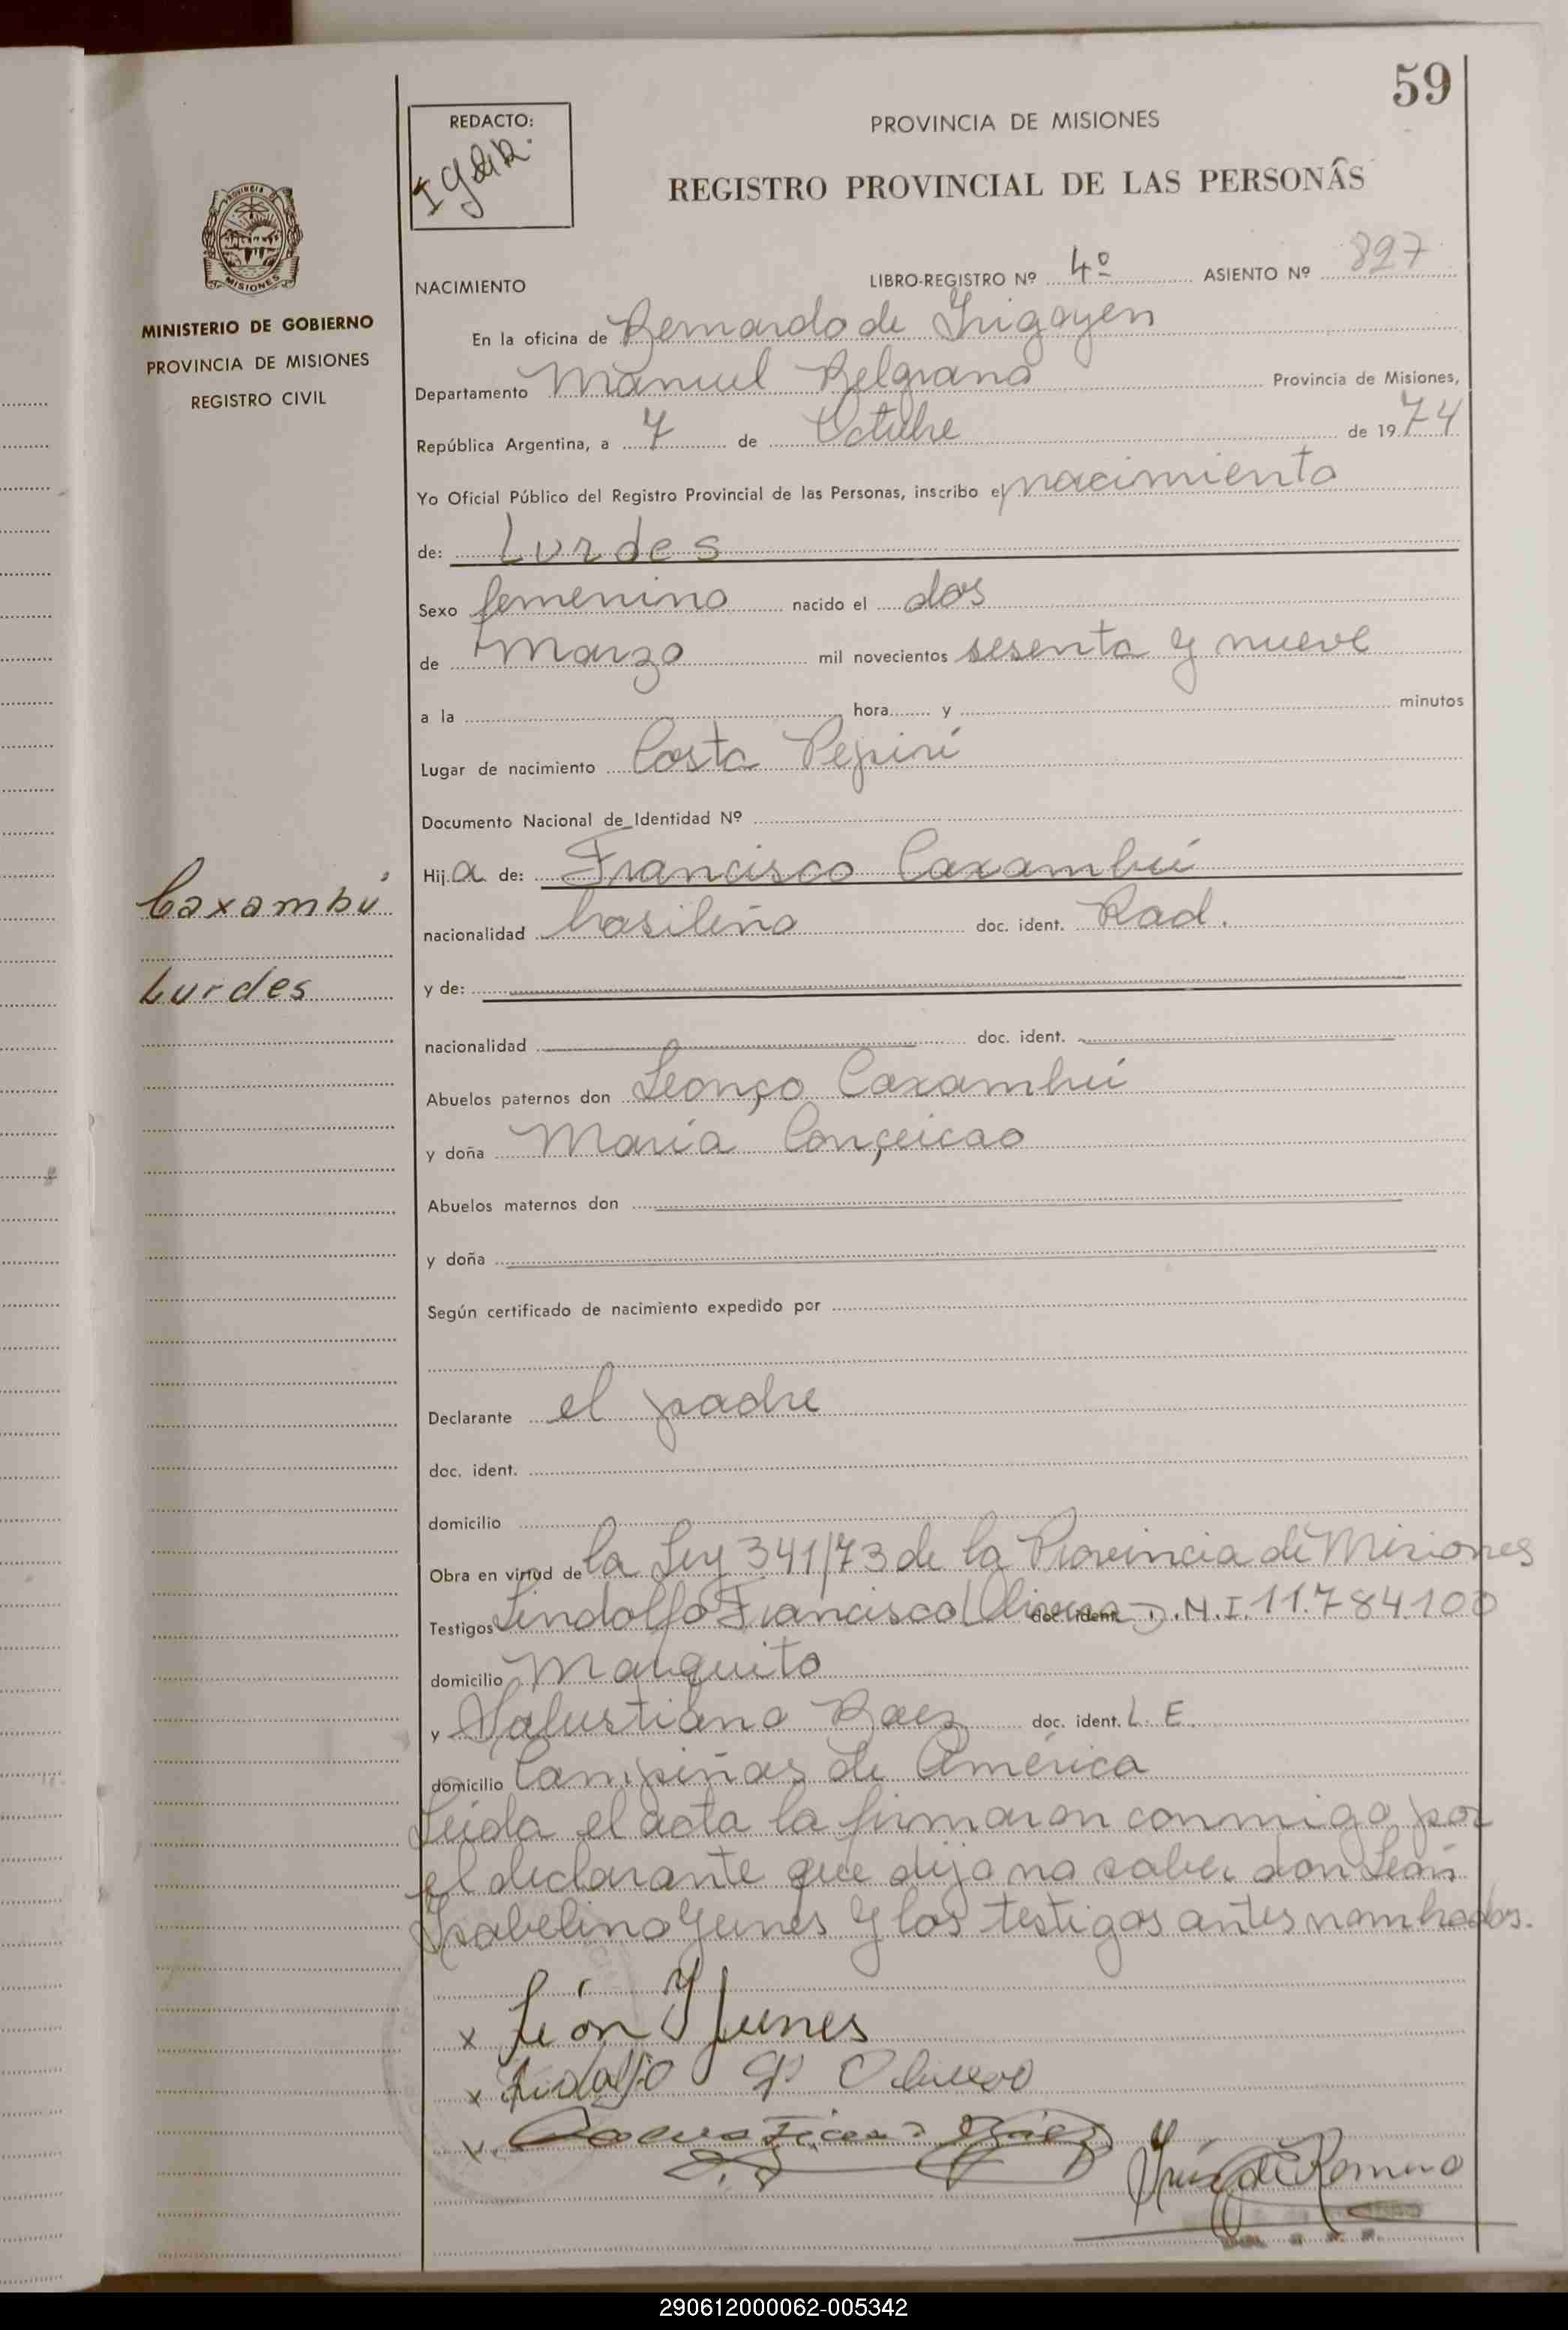 59
REDACTO:
PROVINCIA DE MISIONES
REGISTRO PROVINCIAL DE LAS PERSONAS
PROVINCIA DE
MISIONES
MINISTERIO DE GOBIERNO
PROVINCIA DE MISIONES
REGISTRO CIVIL
NACIMIENTO LIBRO-REGISTRO Nº 4º ASIENTO Nº 827
En la oficina de Bernardo de Irigoyen
Departamento Manuel Belgrano Provincia de Misiones,
República Argentina, a 7 de Octubre de 1974
Yo Oficial Público del Registro Provincial de las Personas, inscribo el nacimiento
de: Lurdes
Sexo femenino nacido el dos
de Marzo mil novecientos sesenta y nueve
a la hora y minutos
Lugar de nacimiento Costa Pepirí
Documento Nacional de Identidad Nº
Hija de: Francisco Caxambú
Caxambú
nacionalidad brasileña doc. ident. Rad.
Lurdes
y de:
nacionalidad doc. ident.
Abuelos paternos don Leonço Caxambú
y doña María Conçeicao
Abuelos maternos don
y doña
Según certificado de nacimiento expedido por
Declarante el padre
doc. ident.
domicilio
Obra en virtud de la Ley 341/73 de la Provincia de Misiones
Testigos Lindolfo Francisco Olivera doc. ident. D.N.I. 11.784.100
domicilio Marquito
y Salustiano Baez doc. ident. L.E.
domicilio Campiñas de América
Leída el acta la firmaron conmigo por
el declarante que dijo no saber don León
Isabelino Yunes y los testigos antes nombrados.
x León Y Yunes
x F Olivera
x Baez
de Romero
290612000062-005342